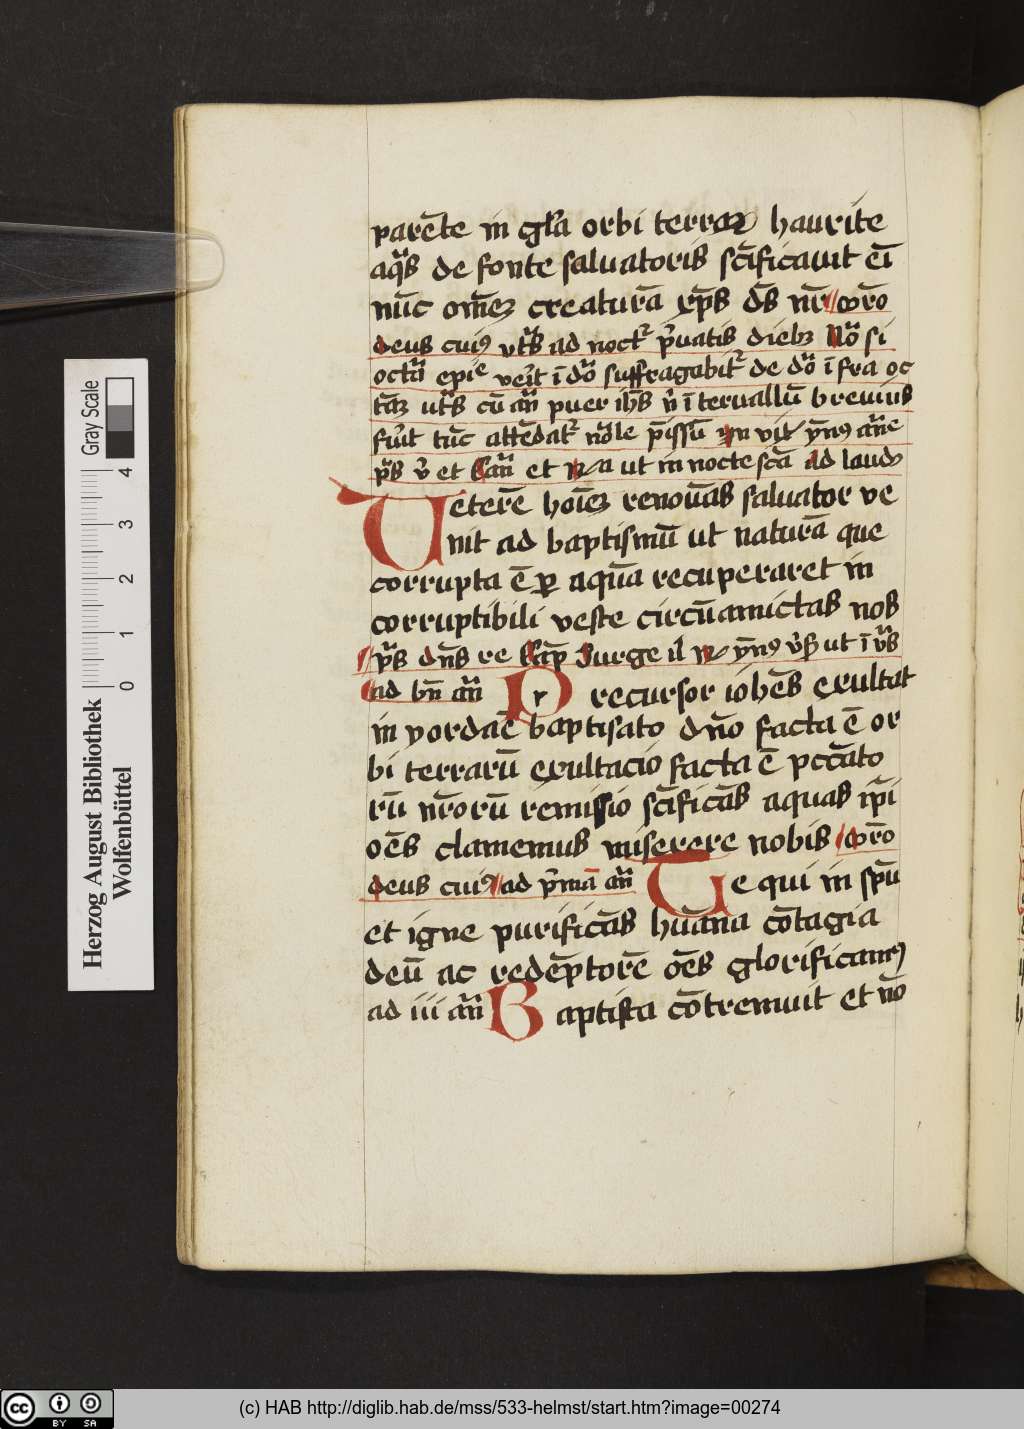 parēte in gl̄a orbi terraꝝ haurite
aq̄s de fonte saluatoris sc̄ificauit eī
nūc om̄eꝫ creaturā xp̄s dn̄s nr̄ orō
deus cuiꝰ vt s ad noct̉ p̉uatis diebꝫ Nō si
octā epīe veīt ī dō suffragabit̉ de dō īfra oc
taꝫ ut s cū an̄ puer ih̄s ū īteruallū breuius
fu̇it tūc attēdat̉ nōle p̄issū yn̄ꝰ an̄e
ps̄ v̄ et Can̄ et ut in nocte scā ad laudꝫ
Ueterē hoīeꝫ renouās saluator ve
nit ad baptismū ut naturā que
corrupta ē ꝑ aquā recuperaret in
corruptibili veste circūamictās nos
ps̄ dn̄s re Cap̄ Surge il yn̄ꝰ v̉s ut ī v̉s
ad bn̄ an̄ Pr recursor ioħes exultat
in yordāe baptisato dn̄o facta ē or
bi terrarū exultacio facta ē pccāto
rū nr̄orū remissio sc̄ificās aquas ip̄i
oēs clamemus miserere nobis orō
deus cuiꝰ ad p̉mā an̄ Te qui in spū
et igne purificās hūana cōtagia
deū ac redēptorē oēs glorificamꝰ
ad iii an̄ Baptista cōtremuit et nō
Herzog August Bibliothek
Wolfenbüttel
Gray Scale
0 1 2 3 4
cc BY SA
(c) HAB http://diglib.hab.de/mss/533-helmst/start.htm?image=00274